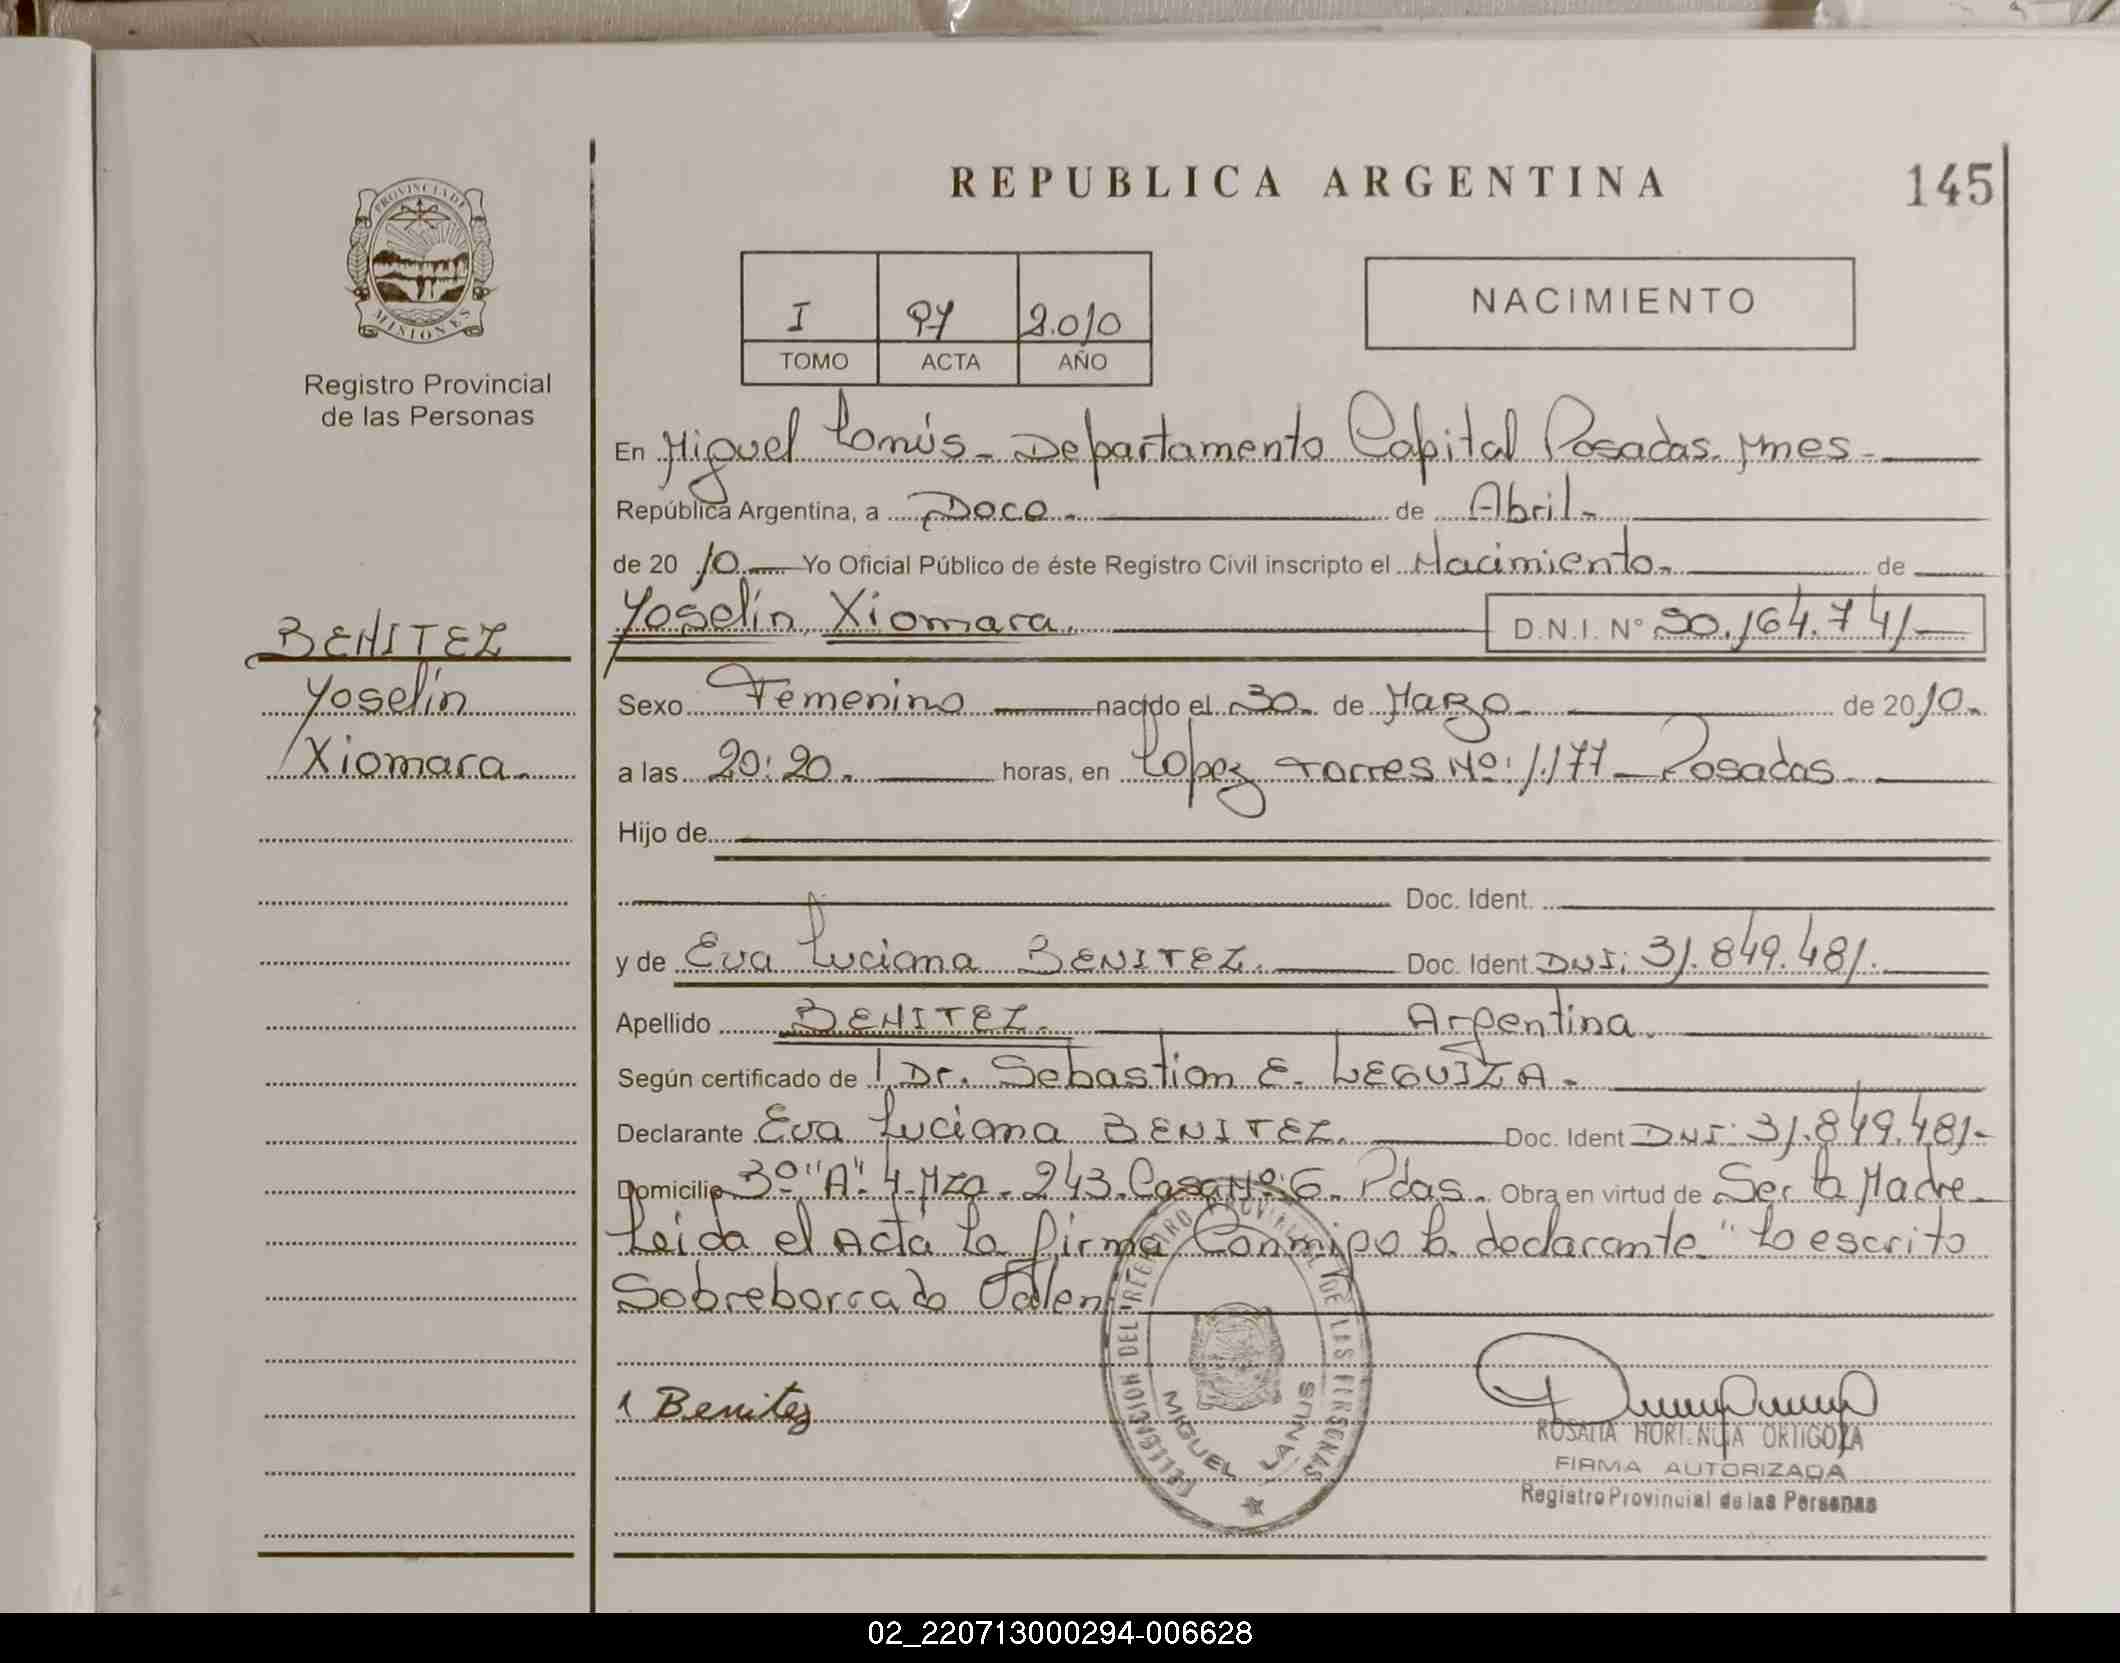 REPUBLICA ARGENTINA
145
PROVINCIA DE
MISIONES
Registro Provincial
de las Personas
I 97 2.010
TOMO ACTA AÑO
NACIMIENTO
En Miguel Lanús - Departamento Capital Posadas. Mnes -
República Argentina, a Doce - de Abril -
de 20 10 - Yo Oficial Público de éste Registro Civil inscripto el Nacimiento - de
Yoselín Xiomara. D.N.I. N° 50.164.741 -
BENITEZ
Yoselín
Xiomara.
Sexo Femenino nacido el 30 - de Marzo - de 2010 -
a las 20:20. horas, en Lopez Torres Nº: 1.177 - Posadas -
Hijo de
Doc. Ident.
y de Eva Luciana BENITEZ. Doc. Ident. DNI: 31.849.481.
Apellido BENITEZ. Argentina.
Según certificado de Dr. Sebastian E. LEGUIZA -
Declarante Eva Luciana BENITEZ. Doc. Ident DNI: 31.849.481 -
Domicilio 3º "A" 4 - Mza. 243. Casa Nº: 6. Pdas. Obra en virtud de Ser la Madre -
Leida el Acta la firma Conmigo la declarante "Lo escrito
Sobreborrado
DELEGACION DEL REGISTRO PROVINCIAL DE LAS PERSONAS
MIGUEL LANUS
Benitez
ROSALIA HORTENCIA ORTIGOZA
FIRMA AUTORIZADA
Registro Provincial de las Personas
02_220713000294-006628